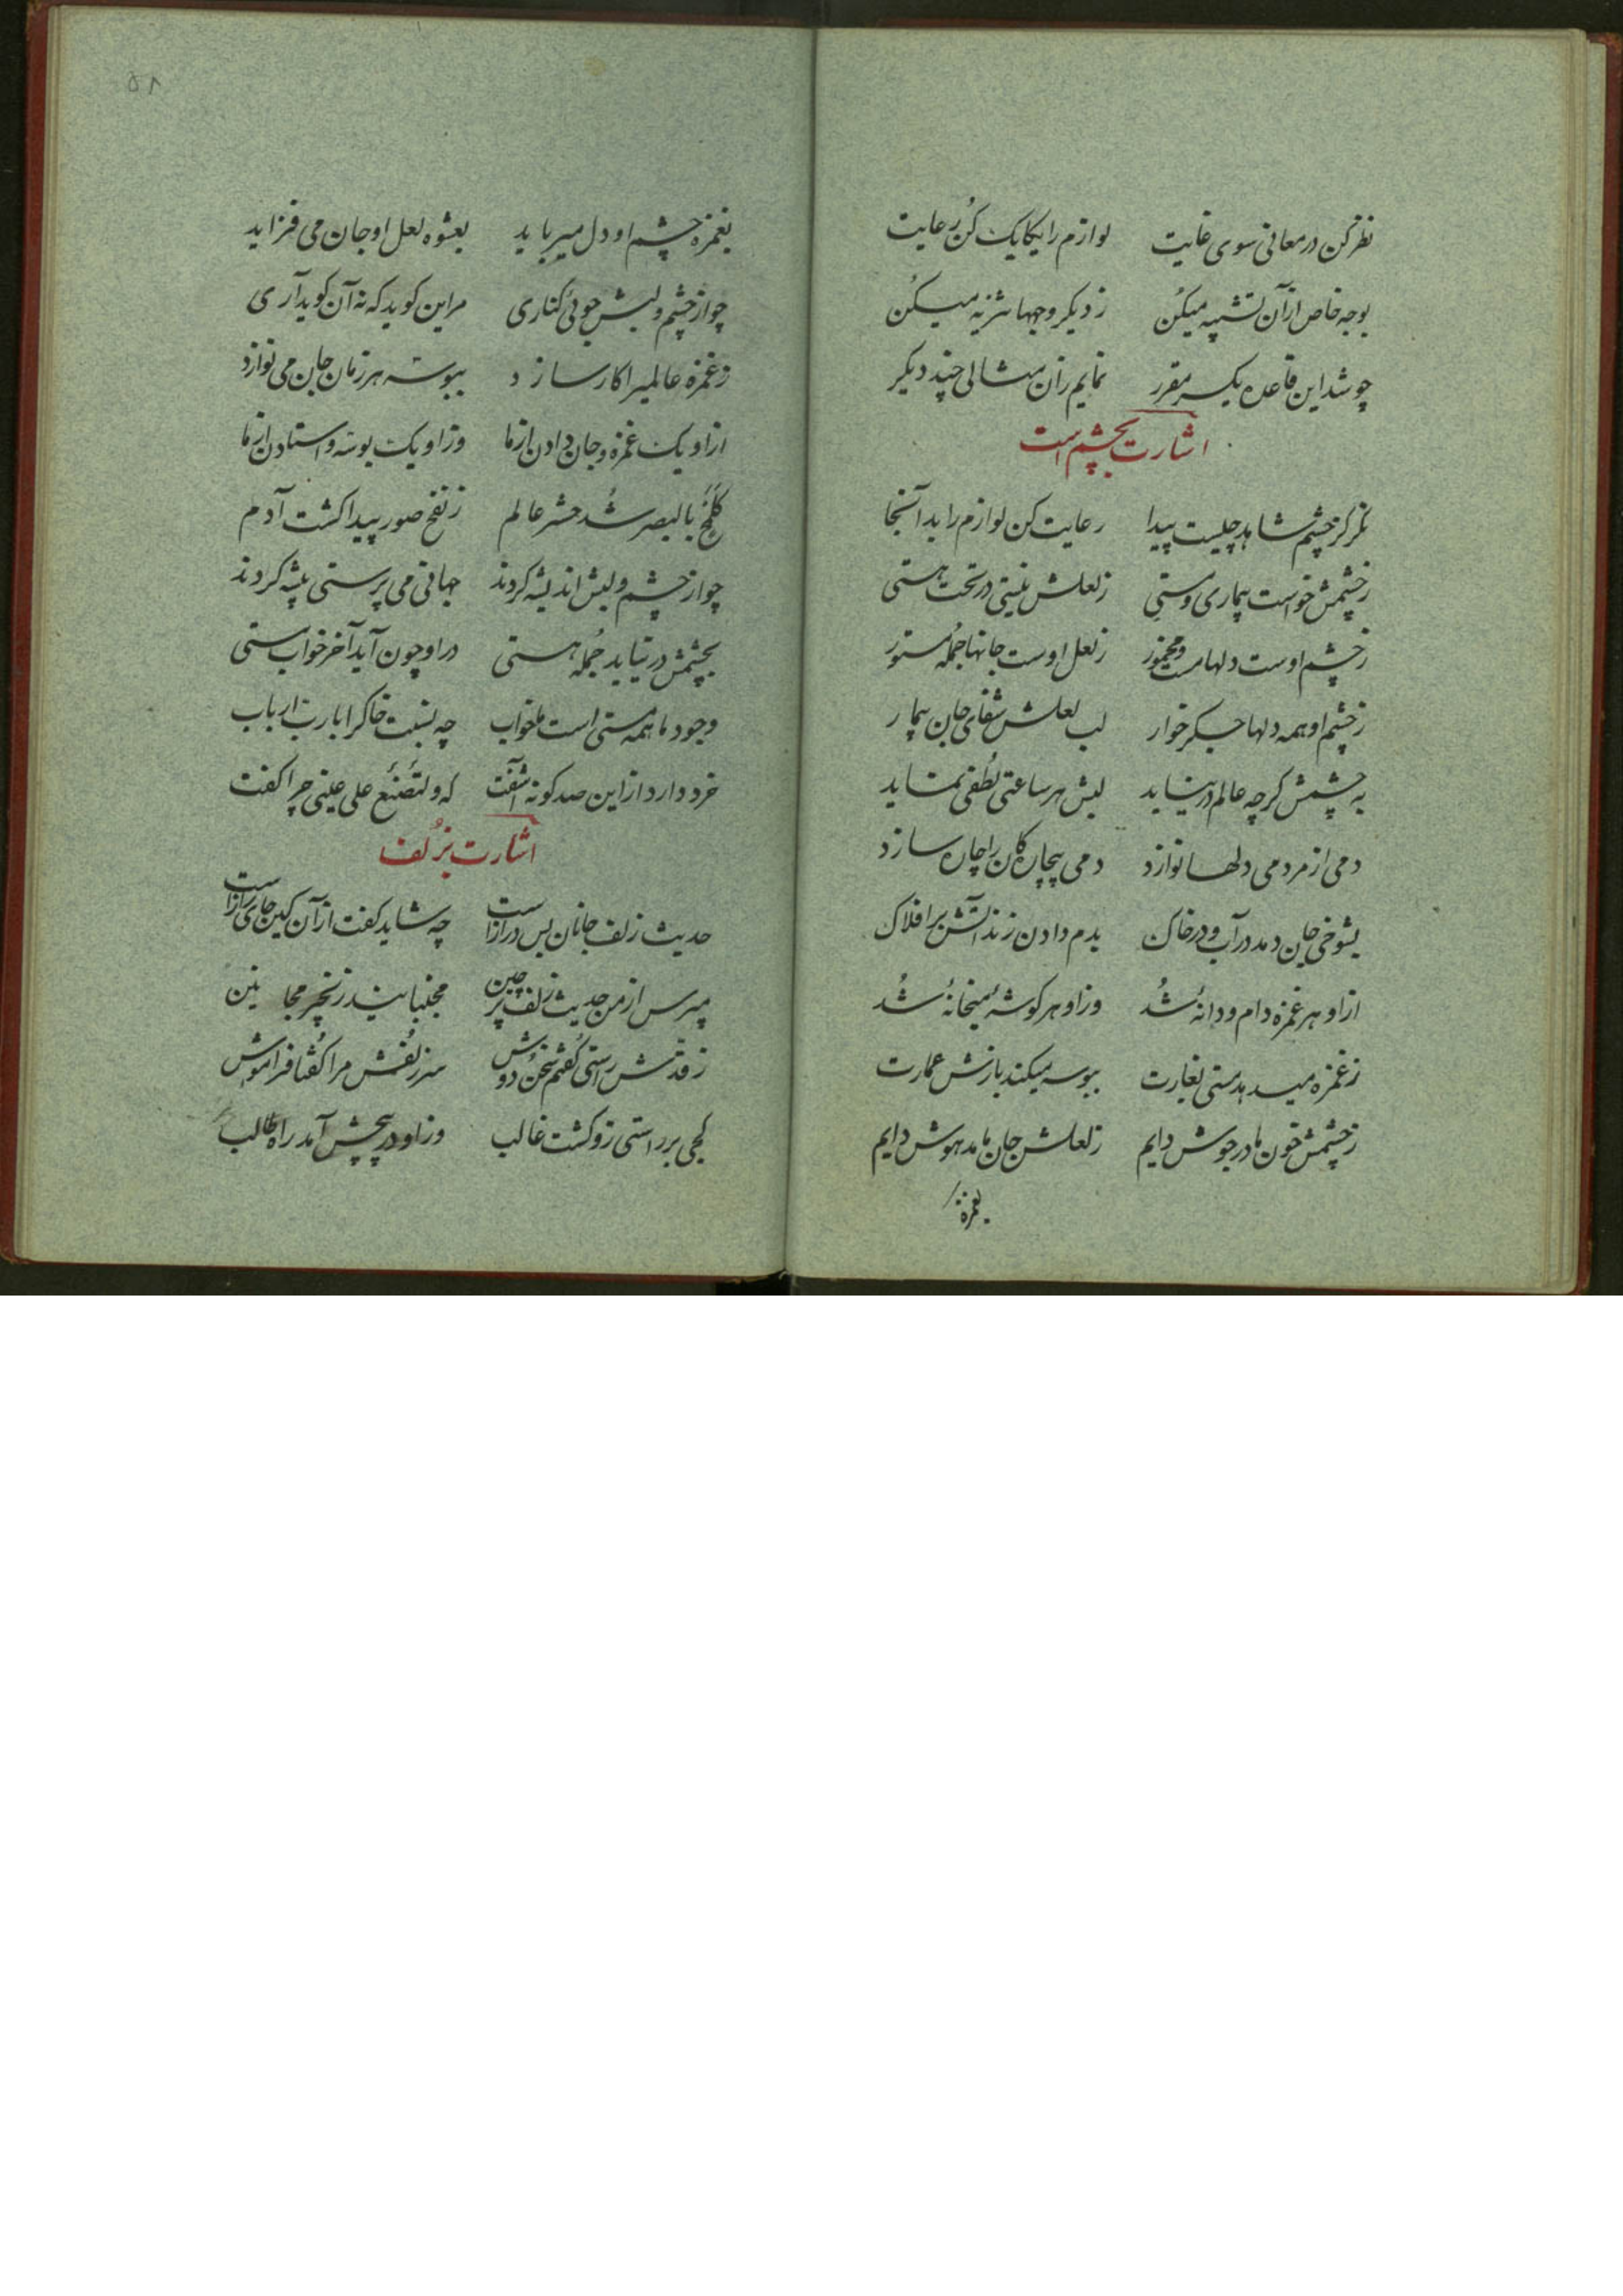 نظر کن در معانی سوی غایت لوازم را یکایک کُن رعایت
بوجه خاص ازآن تشبیه میکُن ز دیکر وجهها تنزیه میکُن
چو شد این قاعده یکسر مقرر نمایم زان مثالی چند دیکر
اشارت بچشم است
نکر کز چشم شاهد چیست پیدا رعایت کن لوازم را بد آنجا
زچشمش خواست بیماری و مستی زلعلش نیستی در تحت هستی
زچشم اوست دلها مست و مخمور زلعل اوست جانها جُمله مستور
زچشم او همه دلها جکر خوار لب لعلش شفای جان بیمار
به چشمش کرچه عالم در نیاید لبش هر ساعتی لُطفی نماید
دمی از مردمی دلها نوازد دمی بیچارکان را چاره سازد
بشوخی جان دمد در آب و در خاک بدم دادن زند آتش بر افلاک
ازاو هر غمزه دام و دانهٔ شُد وزاو هر کوشهٔ میخانهٔ شُد
زغمزه میدهد هستی بغارت ببوسه میکند بازش عمارت
زچشمش خون ما در جوش دایم زلعلش جان ما مدهوش دایم
بغمزه
٥١
بغمزه چشم او دل میرباید بعشوه لعل او جان می فزاید
چو از چشم و لبش جوئی کناری مر این کوید که نه آن کوید آری
زغمزه عالمیرا کار سازد ببوسه هر زمان جان می نوازد
ازاو یک غمزه و جان دادن ازما وزاو یک بوسه و استادن ازما
کَلَمْحٍ بالبصر شُد حشر عالم زنفخ صور پیدا کشت آدم
چو از چشم و لبش اندیشه کردند جهانی می پرستی پیشه کردند
بچشمش در نیاید جُمله هستی دراو چون آید آخر خواب مستی
وجود ما همه مستی است یا خواب چه نسبت خاک را با رب ارباب
خرد دارد ازاین صد کونه اشفت که وَلتُصْنَعَ علی عینی چرا کفت
اشارت بزُلف
حدیث زلف جانان بس درازاست چه شاید کفت ازآن کین جای رازاست
مپرس ازمن حدیث زلف پر چین مجنبانید زنجیر مجانین
زقدش راستی کُفتم سُخن دوش سر زلُفش مرا کُفتا فراموش
کجی بر راستی زو کشت غالب وزاو در پیچش آمد راه طالب